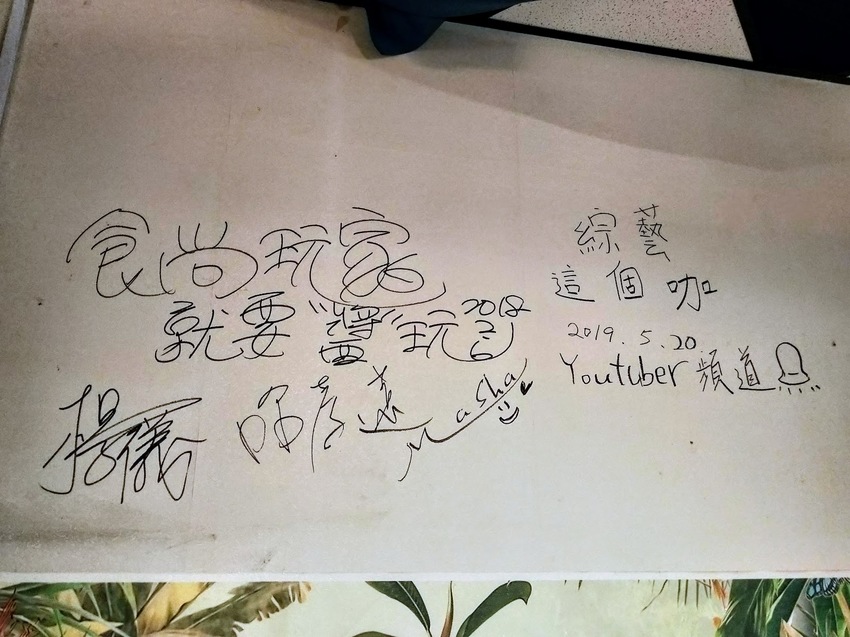 食尚玩家
就要"醬"玩 2018 2.6
楊儀
Masha
綜藝
這個咖
2019.5.20.
Youtuber 頻道